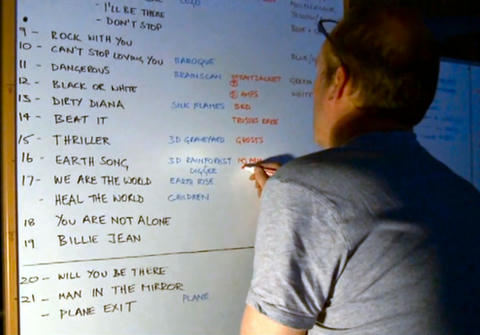 - I'LL BE THERE
- DON'T STOP
9 - ROCK WITH YOU
10 - CAN'T STOP LOVING YOU BAROQUE
11 - DANGEROUS BRAINSCAN STRAITJACKET GREEN
12 - BLACK OR WHITE AMPS WHITE
13 - DIRTY DIANA SILK FLAMES BED
14 - BEAT IT
15 - THRILLER 3D GRAVEYARD GHOSTS
16 - EARTH SONG 3D RAINFOREST
DIGGER
17 - WE ARE THE WORLD EARTH RISE
- HEAL THE WORLD CHILDREN
18 YOU ARE NOT ALONE
19 BILLIE JEAN
20 - WILL YOU BE THERE
21 - MAN IN THE MIRROR PLANE
- PLANE EXIT